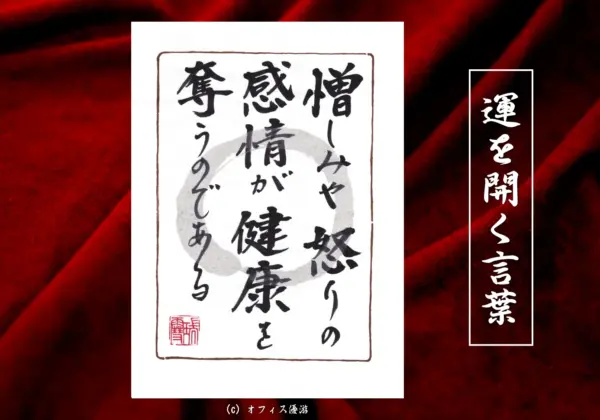 運を開く言葉
憎しみや怒りの
感情が健康を
奪うのである
(C) オフィス優游